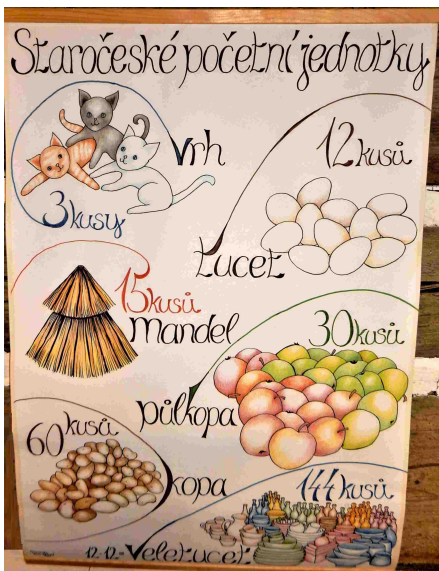 Staročeské početní jednotky
vrh
3 kusy
12 kusů
tucet
15 kusů
mandel
30 kusů
půlkopa
60 kusů
kopa
144 kusů
12.12.= Veletucet